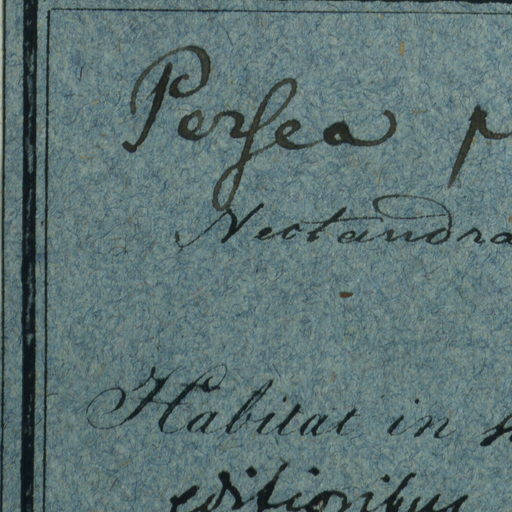 Persea
Nectandra
Habitat in
editioribus